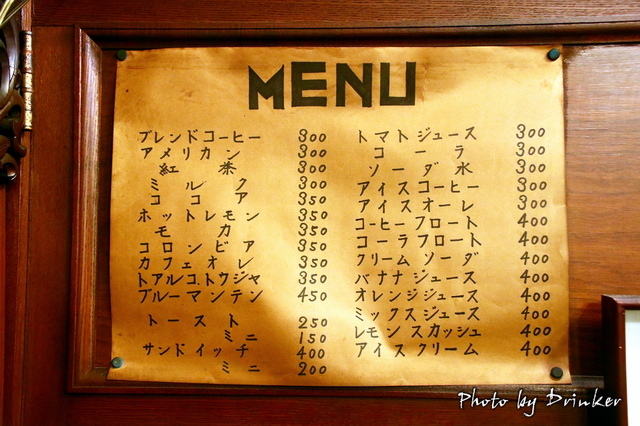 MENU
ブレンドコーヒー 300
アメリカン 300
紅茶 300
ミルク 300
ココア 350
ホットレモン 350
モカ 350
コロンビア 350
カフェオレ 350
トアルコ、トウジャ 350
ブルーマンテン 450
トースト 250
ミニ 150
サンドイッチ 400
ミニ 200
トマトジュース 300
コーラ 300
ソーダ水 300
アイスコーヒー 300
アイスオーレ 350
コーヒーフロート 400
コーラフロート 400
クリームソーダ 400
バナナジュース 400
オレンジジュース 400
ミックスジュース 400
レモンスカッシュ 400
アイスクリーム 400
Photo by Drinker